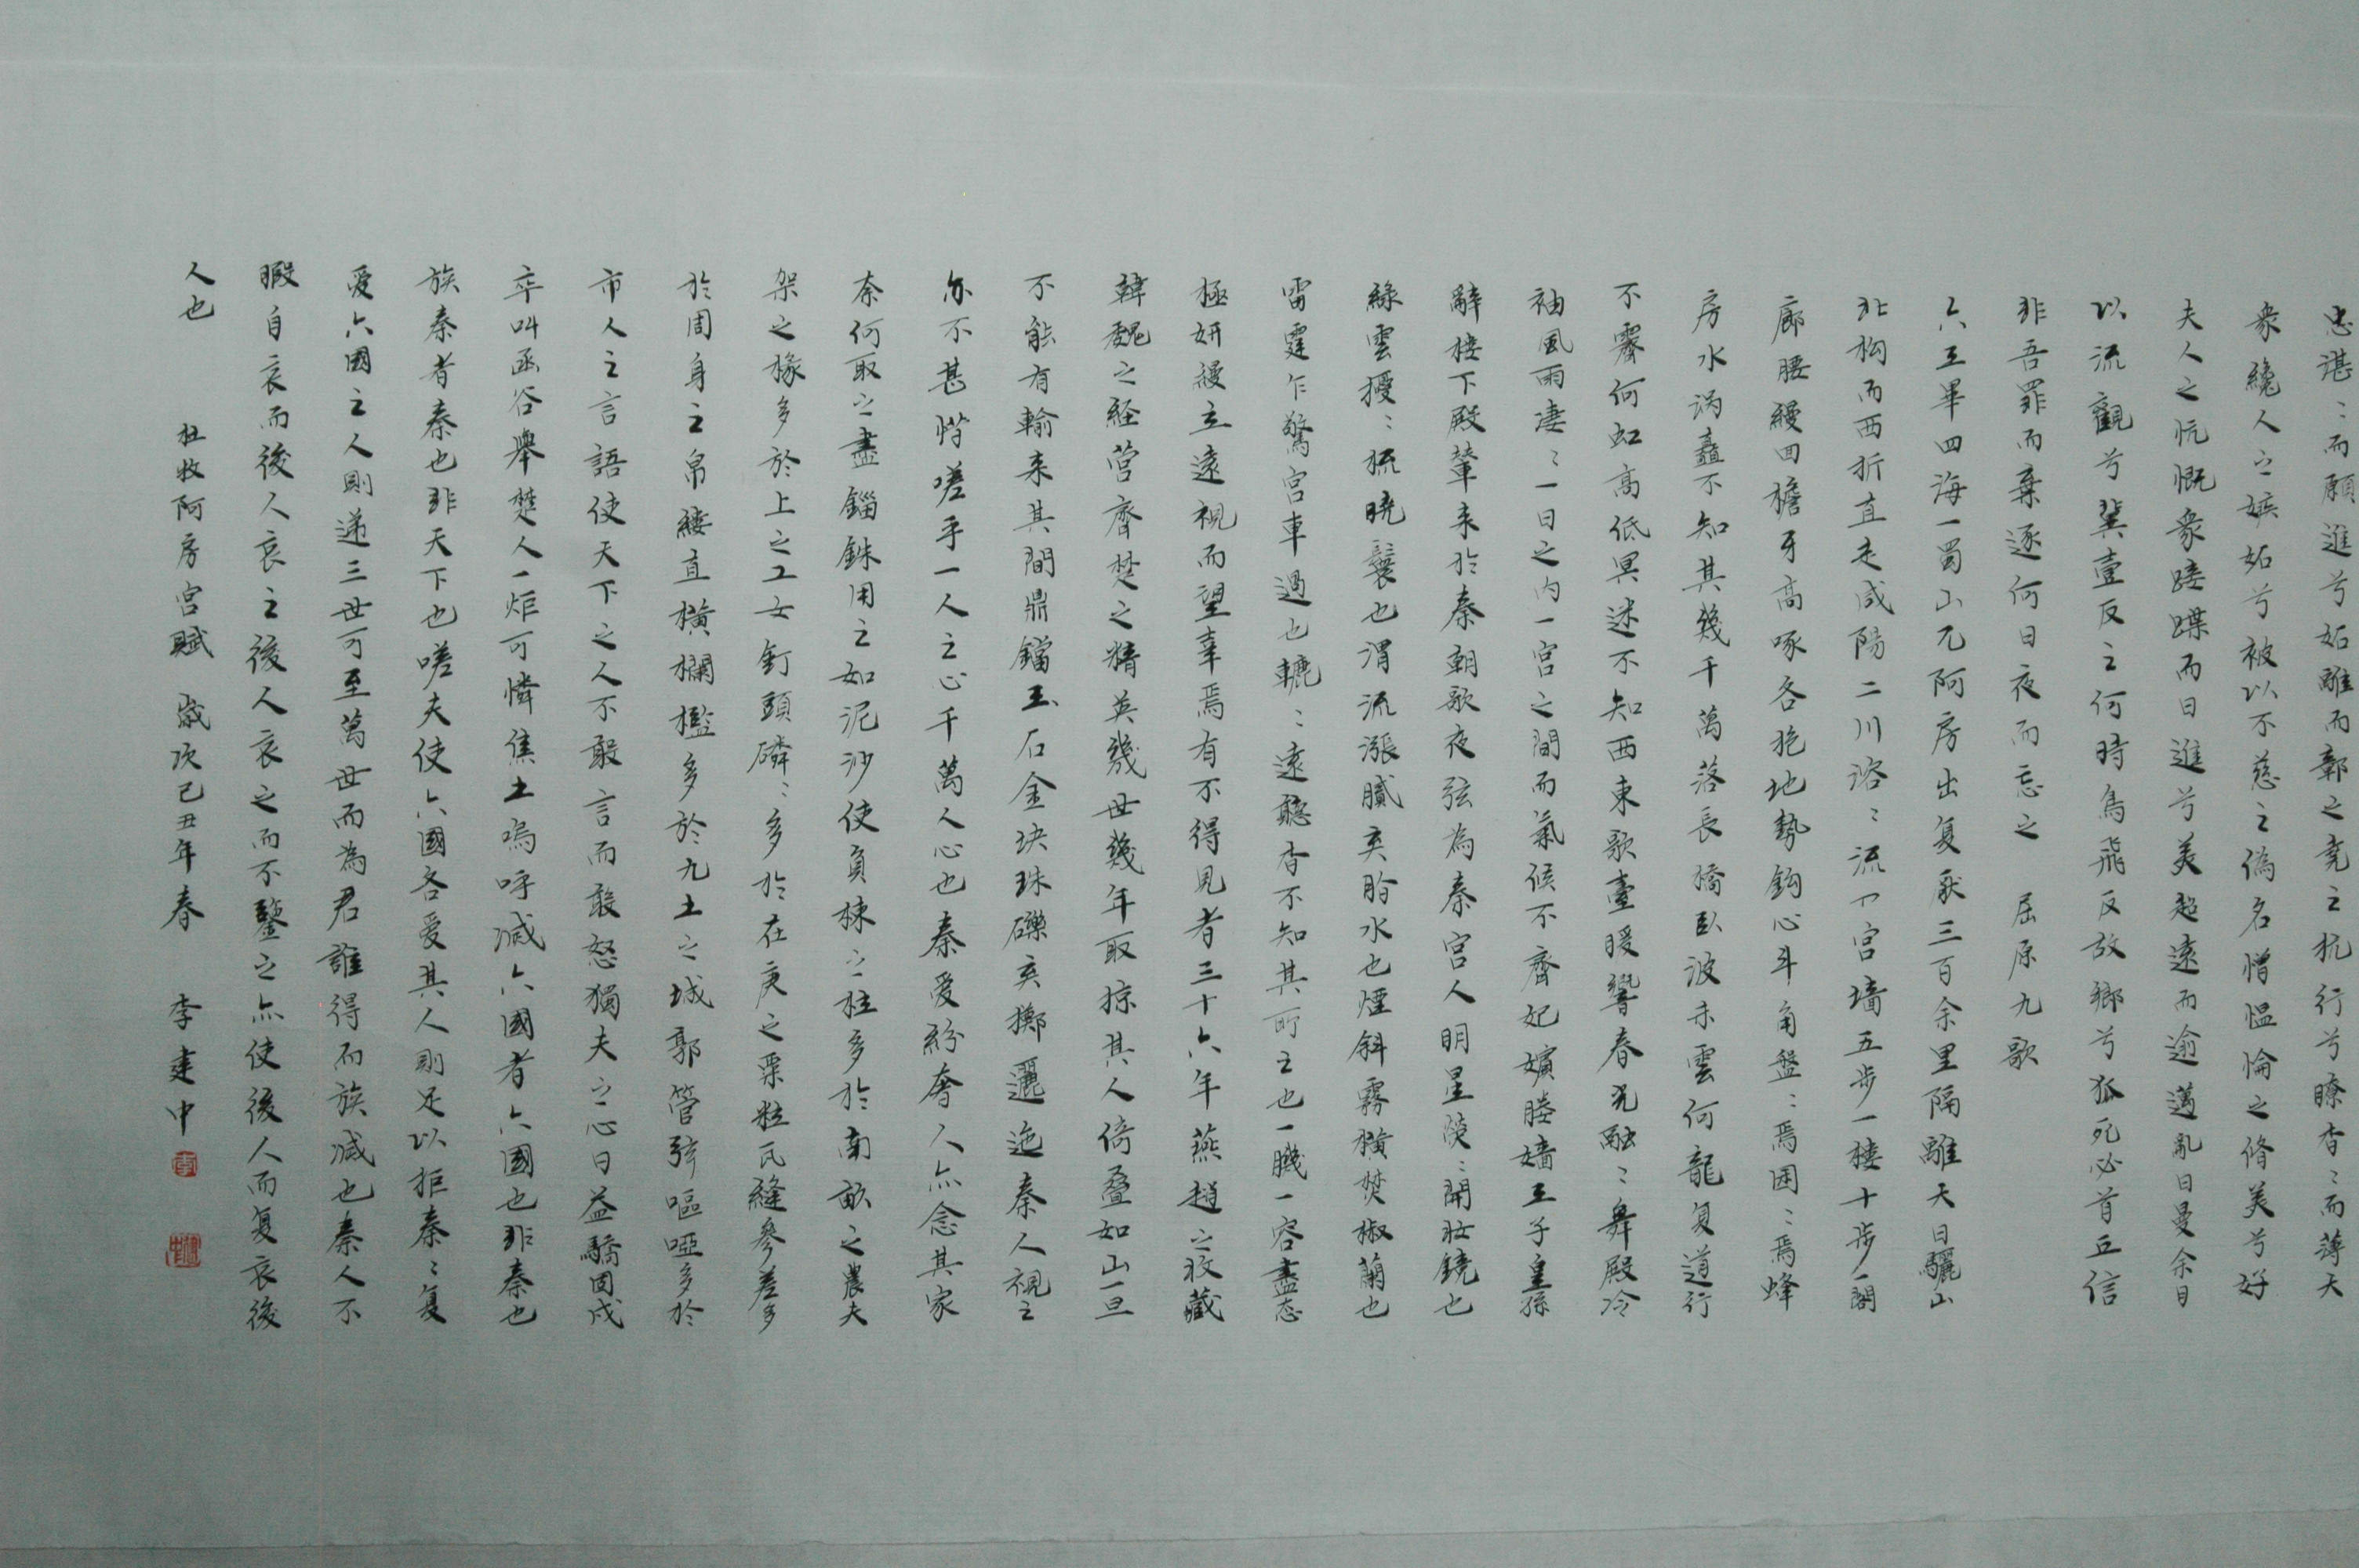 忠湛々而願進兮妬離而鄣之堯之抗行兮瞭杳々而薄天
衆纔人之嫉妬兮被以不慈之偽名憎慍惀之脩美兮好
夫人之忼慨衆踥蹀而日進兮美超遠而逾邁亂曰曼余目
以流觀兮冀壹反之何時鳥飛反故鄉兮狐死必首丘信
非吾罪而棄逐何日夜而忘之 屈原九歌
六王畢四海一蜀山兀阿房出復壓三百余里隔離天日驪山
北構而西折直走咸陽二川溶々流入宮墻五步一樓十步一閣
廊腰縵回檐牙高啄各抱地勢鉤心斗角盤々焉囷々焉蜂
房水渦矗不知其幾千萬落長橋臥波未雲何龍復道行
不霽何虹高低冥迷不知西東歌臺暖響春光融々舞殿冷
袖風雨凄々一日之內一宮之間而氣候不齊妃嬪媵嬙王子皇孫
辭樓下殿輦來於秦朝歌夜弦為秦宮人明星熒々開妝鏡也
綠雲擾々梳曉鬟也渭流漲膩棄脂水也煙斜霧橫焚椒蘭也
雷霆乍驚宮車過也轆々遠聽杳不知其所之也一肌一容盡態
極妍縵立遠視而望幸焉有不得見者三十六年燕趙之收藏
韓魏之經營齊楚之精英幾世幾年取掠其人倚疊如山一旦
不能有輸來其間鼎鐺玉石金塊珠礫棄擲邐迤秦人視之
亦不甚惜嗟乎一人之心千萬人心也秦愛紛奢人亦念其家
奈何取之盡錙銖用之如泥沙使負棟之柱多於南畝之農夫
架之椽多於上之工女釘頭磷々多於在庾之粟粒瓦縫參差多
於周身之帛縷直橫欄檻多於九土之城郭管弦嘔啞多於
市人之言語使天下之人不敢言而敢怒獨夫之心日益驕固戍
卒叫函谷舉楚人一炬可憐焦土嗚呼滅六國者六國也非秦也
族秦者秦也非天下也嗟夫使六國各愛其人則足以拒秦々復
愛六國之人則遞三世可至萬世而為君誰得而族滅也秦人不
暇自哀而後人哀之後人哀之而不鑒之亦使後人而復哀後
人也 杜牧阿房宮賦 歲次己丑年春 李建中